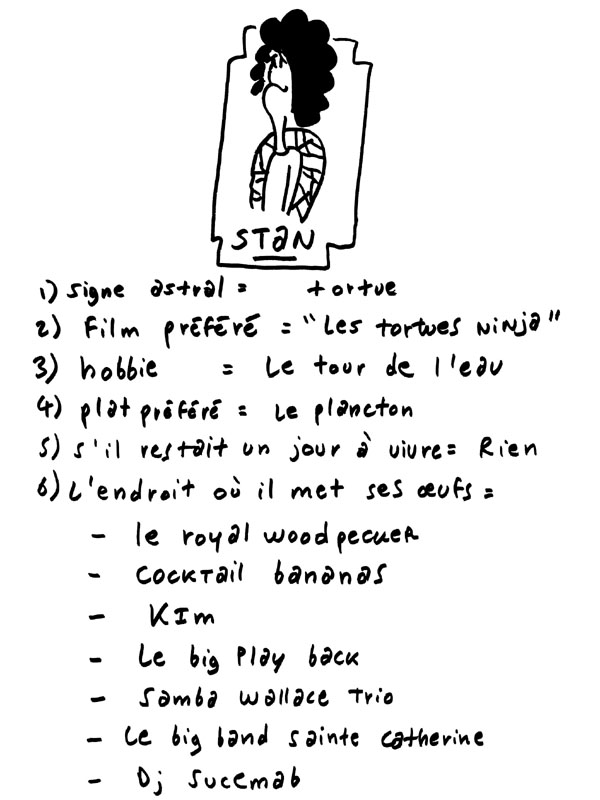 STaN
1) signe astral = tortue
2) Film préféré = "Les tortues ninja"
3) hobbie = Le tour de l'eau
4) plat préféré = Le plancton
5) s'il restait un jour à vivre = Rien
6) L'endroit où il met ses œufs =
- le royal woodpecker
- cocktail bananas
- KIm
- Le big Play back
- Samba Wallace Trio
- Le big band sainte catherine
- Dj sucemab